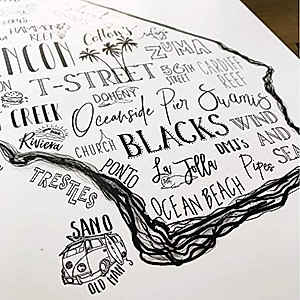 HAMMONDS
REEF
Cottons
ZUMA
NCON
T-STREET
56TH
STREET
CARDIFF
REEF
DOHENY
Oceanside Pier
Swamis
CREEK
Riviera
CHURCH
BLACKS
WIND
AND
SEA
PONTO
La Jolla
DMJS
Pipes
TRESTLES
OCEAN BEACH
SANO
OLD MAN'S